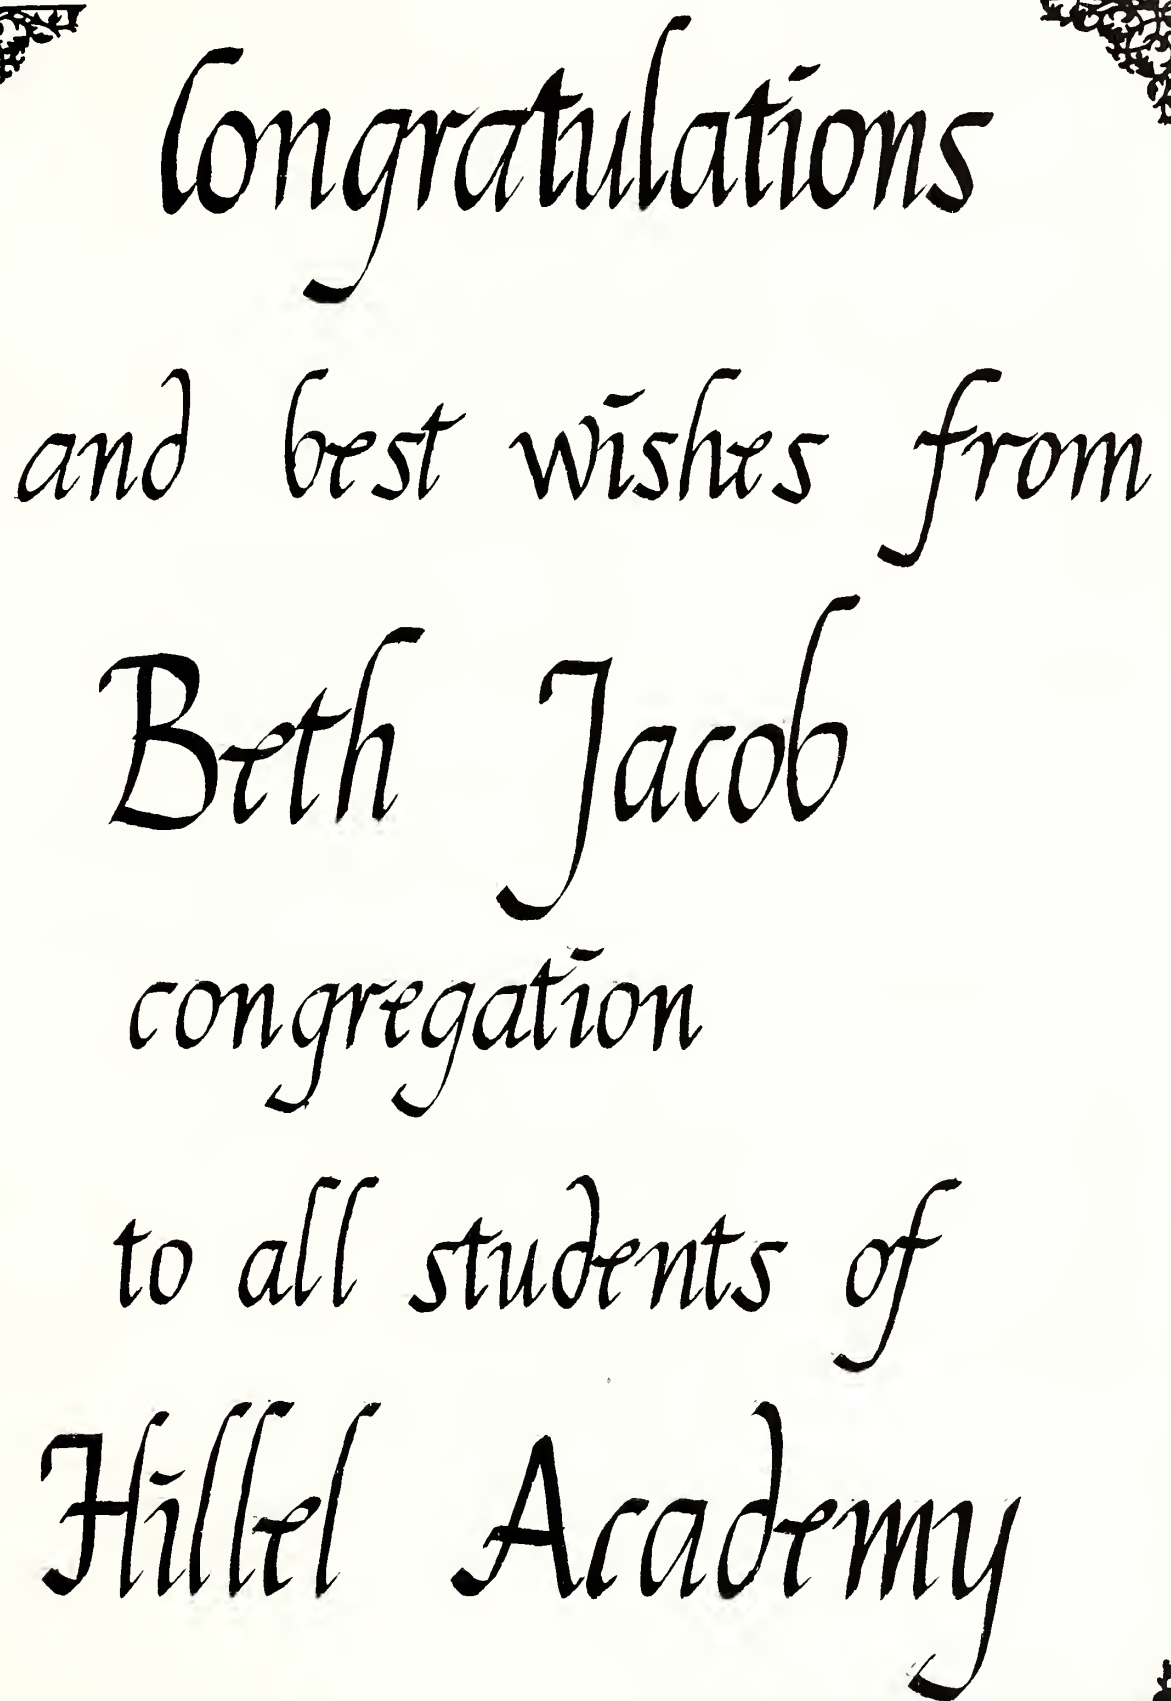 Congratulations
and best wishes from
Beth Jacob
congregation
to all students of
Hillel Academy